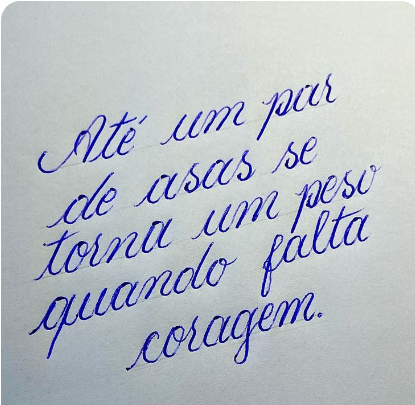 Até um par
de asas se
torna um peso
quando falta
coragem.